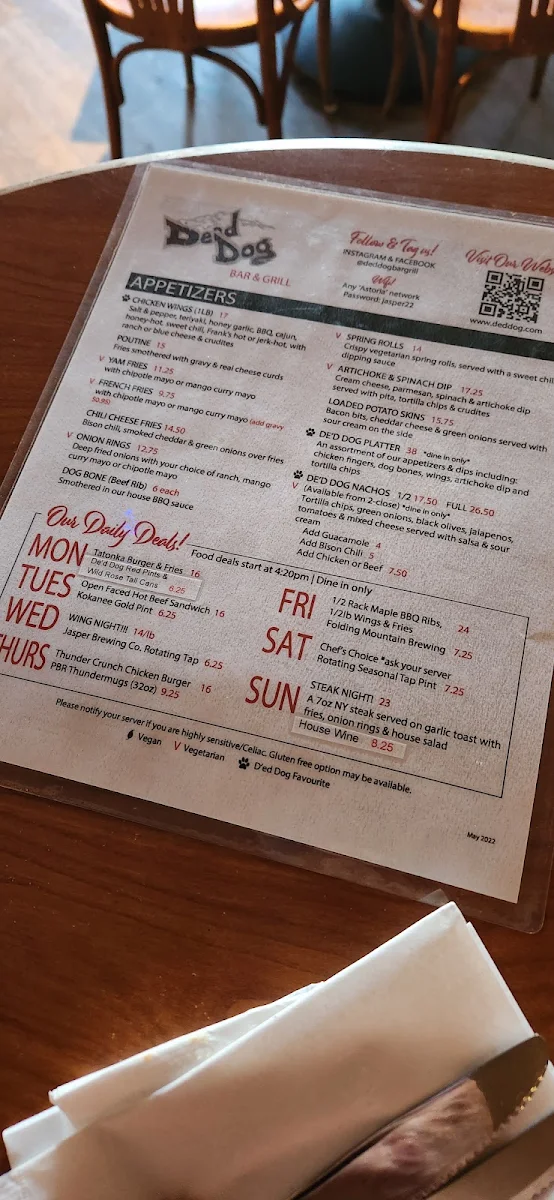 De'd Dog
BAR & GRILL
Follow & Tag us!
INSTAGRAM & FACEBOOK
@deddogbargrill
Wifi!
Any 'Astoria' network
Password: jasper22
Visit Our
www.deddog.com
APPETIZERS
CHICKEN WINGS (1LB) 17
Salt & pepper, teriyaki, honey garlic, BBQ, cajun,
honey-hot, sweet chili, Frank's hot or jerk-hot, with
ranch or blue cheese & crudites
POUTINE 15
Fries smothered with gravy & real cheese curds
V YAM FRIES 11.25
with chipotle mayo or mango curry mayo
V FRENCH FRIES 9.75
with chipotle mayo or mango curry mayo (add gravy
$0.95)
CHILI CHEESE FRIES 14.50
Bison chili, smoked cheddar & green onions over fries
V ONION RINGS 12.75
Deep fried onions with your choice of ranch, mango
curry mayo or chipotle mayo
DOG BONE (Beef Rib) 6 each
Smothered in our house BBQ sauce
V SPRING ROLLS 14
Crispy vegetarian spring rolls, served with a sweet chili
dipping sauce
V ARTICHOKE & SPINACH DIP 17.25
Cream cheese, parmesan, spinach & artichoke dip
served with pita, tortilla chips & crudites
LOADED POTATO SKINS 15.75
Bacon bits, cheddar cheese & green onions served with
sour cream on the side
DE'D DOG PLATTER 38 *dine in only*
An assortment of our appetizers & dips including:
chicken fingers, dog bones, wings, artichoke dip and
tortilla chips
DE'D DOG NACHOS 1/2 17.50 FULL 26.50
V (Available from 2-close) *dine in only*
Tortilla chips, green onions, black olives, jalapenos,
tomatoes & mixed cheese served with salsa & sour
cream
Add Guacamole 4
Add Bison Chili 5
Add Chicken or Beef 7.50
Our Daily Deals!
Food deals start at 4:20pm | Dine in only
MON Tatonka Burger & Fries 16
De'd Dog Red Pints &
Wild Rose Tall Cans 6.25
TUES Open Faced Hot Beef Sandwich 16
Kokanee Gold Pint 6.25
WED WING NIGHT!!! 14/lb
Jasper Brewing Co. Rotating Tap 6.25
THURS Thunder Crunch Chicken Burger 16
PBR Thundermugs (32oz) 9.25
FRI 1/2 Rack Maple BBQ Ribs,
1/2lb Wings & Fries 24
Folding Mountain Brewing 7.25
SAT Chef's Choice *ask your server
Rotating Seasonal Tap Pint 7.25
SUN STEAK NIGHT! 23
A 7oz NY steak served on garlic toast with
fries, onion rings & house salad
House Wine 8.25
Please notify your server if you are highly sensitive/Celiac. Gluten free option may be available.
Vegan V Vegetarian D'ed Dog Favourite
May 2022